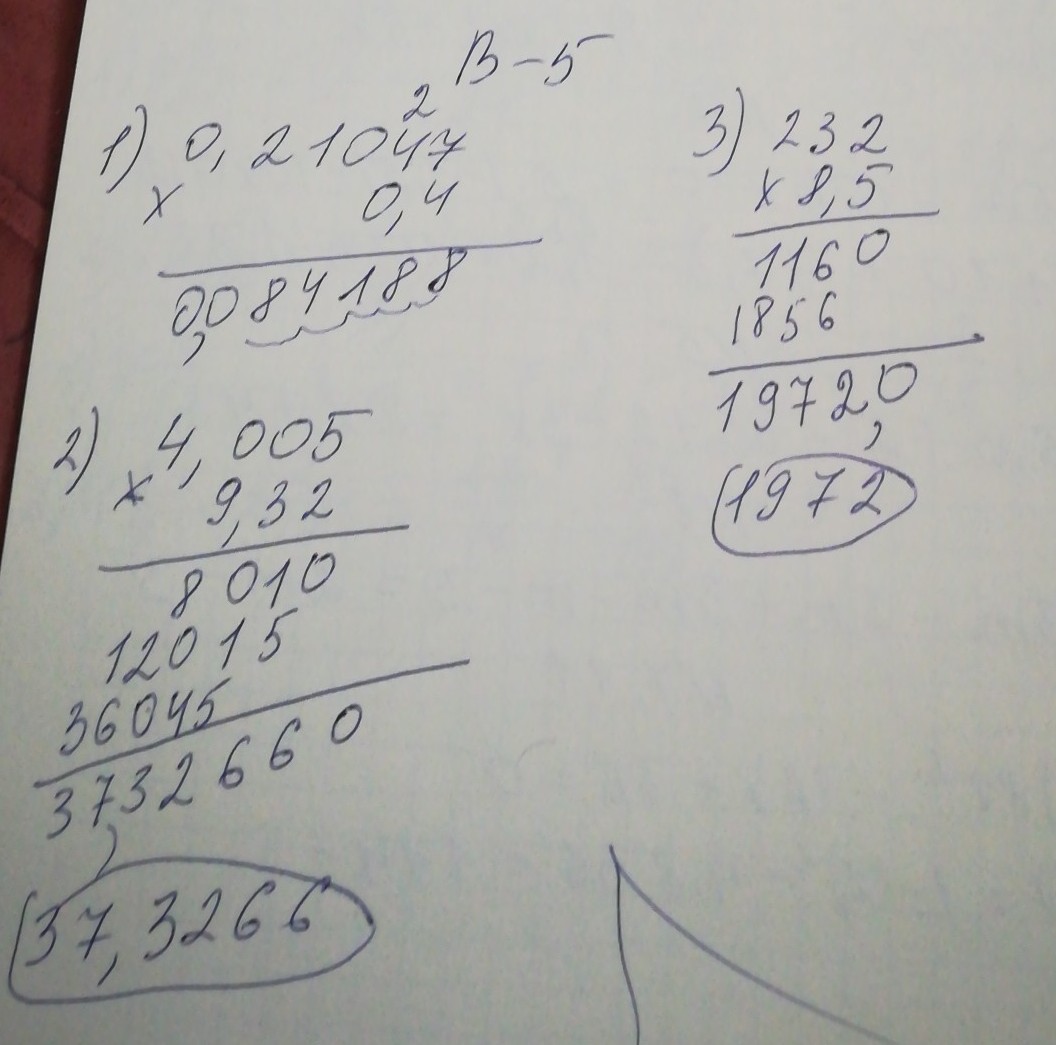 В-5
1) 0,21047
2
× 0,4
0,084188
2) 4,005
× 9,32
8010
12015
36045
37,32660
37,3266
3) 232
× 8,5
1160
1856
1972,0
1972